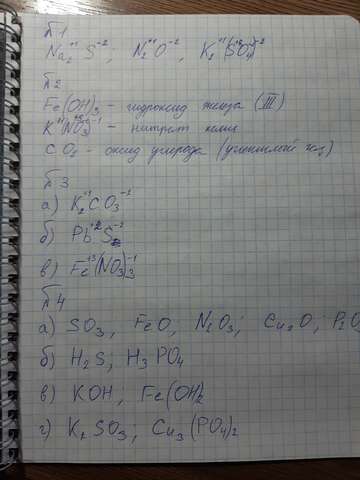 №1
Na₂⁺¹ S⁻²; N₂⁺¹O⁻², K₂⁺¹(SO₄)⁻²
№2
Fe(OH)₃ - гидроксид железа (III)
K⁺¹(NO₃)⁻¹ - нитрат калия
CO₂ - оксид углерода (углекислый газ)
№3
а) K₂⁺¹CO₃⁻¹
б) Pb⁺²S⁻²
в) Fe⁺³(NO₃)₃⁻¹
№4
а) SO₃, FeO, N₂O₃; Cu₂O; P₂O
б) H₂S; H₃PO₄
в) KOH; Fe(OH)₂
г) K₂SO₃; Cu₃(PO₄)₂